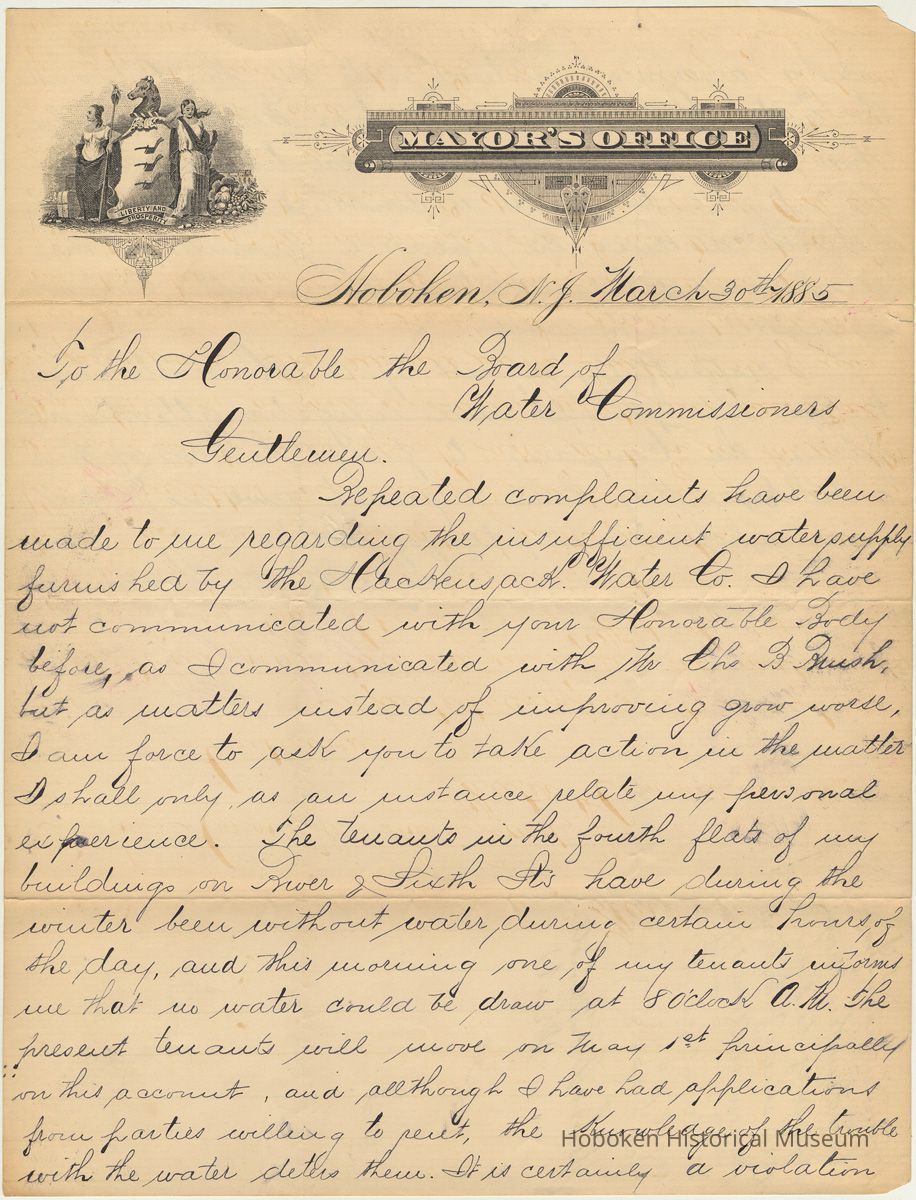 LIBERTY AND
PROSPERITY
MAYOR'S OFFICE
Hoboken, N.J. March 30th 1885
To the Honorable the Board of
Water Commissioners
Gentlemen.
Repeated complaints have been
made to me regarding the insufficient water supply
furnished by the Hackensack Water Co. I have
not communicated with your Honorable Body
before, as I communicated with Mr Chs B Brush,
but as matters instead of improving grow worse,
I am force to ask you to take action in the matter
I shall only, as an instance relate my personal
experience. The tenants in the fourth flats of my
buildings on River & Sixth Sts have during the
winter been without water during certain hours of
the day, and this morning one of my tenants informs
me that no water could be draw at 8 O'clock A.M. The
present tenants will move on May 1st principally
on this account, and allthough I have had applications
from parties willing to rent, the Knowledge of the trouble
with the water deters them. It is certainly a violation
Hoboken Historical Museum